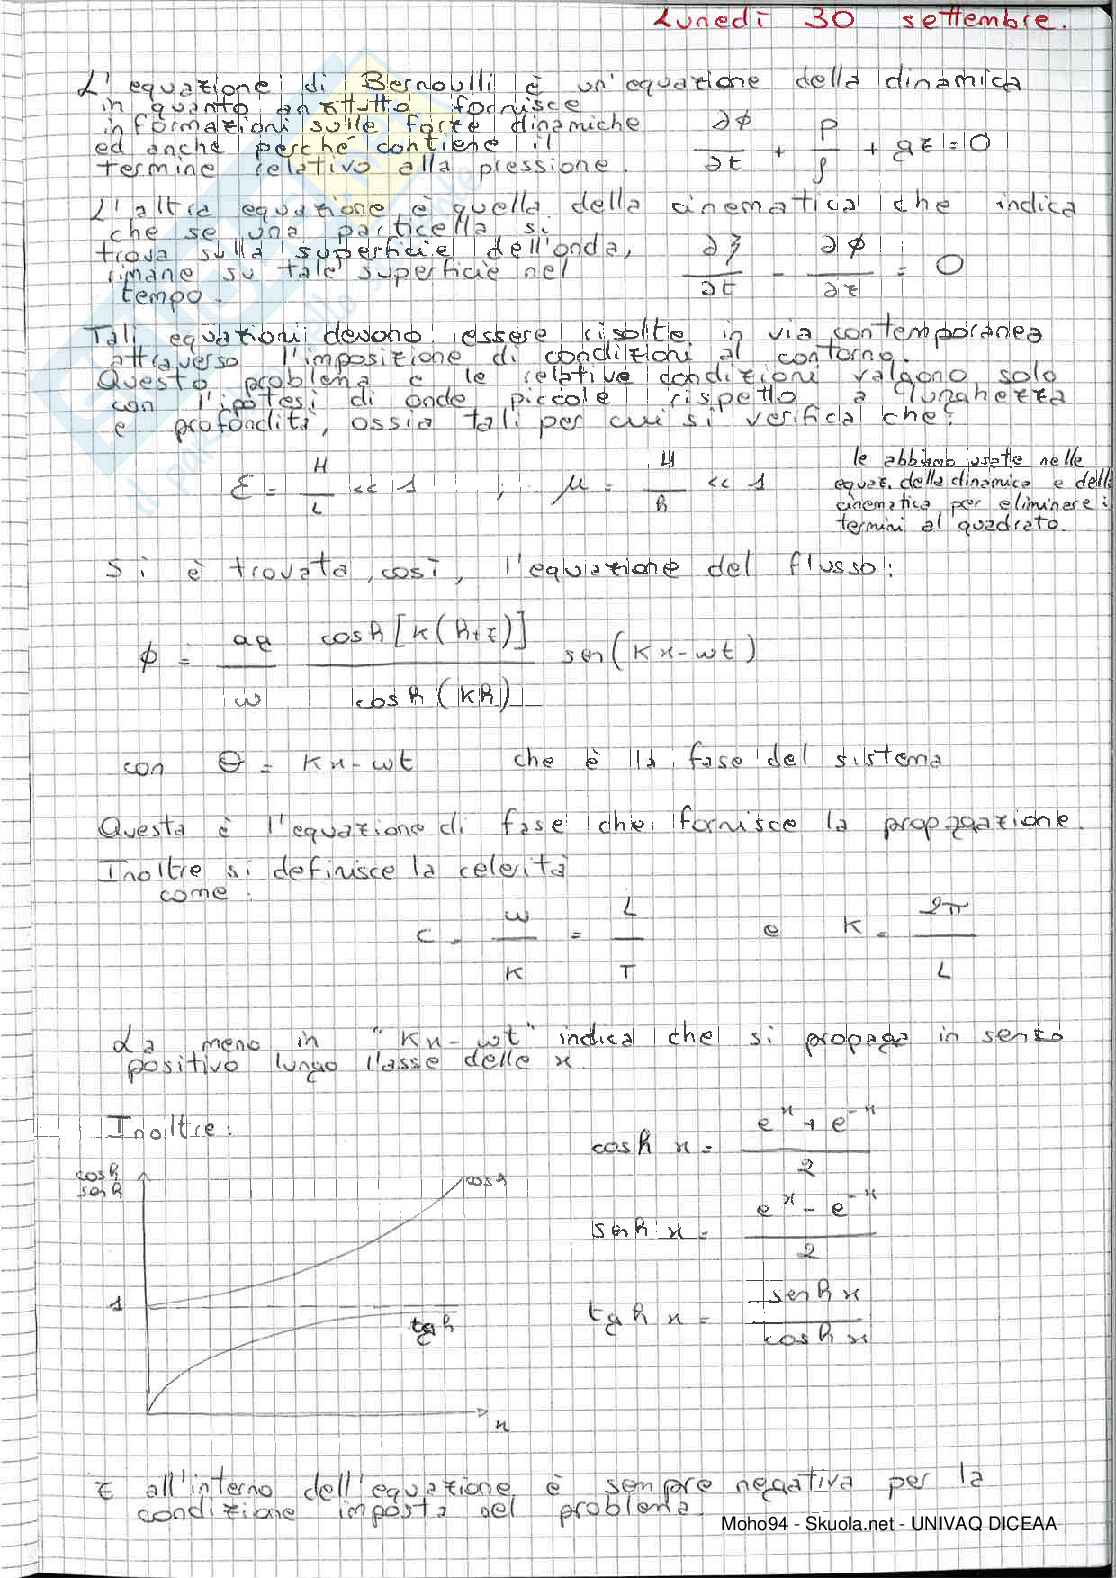 Lunedì 30 settembre.
L'equazione di Bernoulli è un'equazione della dinamica
in quanto anzitutto fornisce
informazioni sulle forze dinamiche
ed anche perché contiene il
termine relativo alla pressione.
∂ϕ/∂t + P/ρ + gz = 0
L'altra equazione è quella della cinematica che indica
che se una particella si
trova sulla superficie dell'onda,
rimane su tale superficie nel
tempo.
∂ξ/∂t - ∂ϕ/∂z = 0
Tali equazioni devono essere risolte in via contemporanea
attraverso l'imposizione di condizioni al contorno.
Questo problema e le relative condizioni valgono solo
con l'ipotesi di onde piccole rispetto a lunghezza
e profondità, ossia tali per cui si verifica che:
ε = H/L << 1 ; μ = H/h << 1
le abbiamo usate nelle
equaz. della dinamica e dell
cinematica per eliminare i
termini al quadrato.
Si è trovata, così, l'equazione del flusso:
ϕ = ag/w cosh[k(h+z)]/cosh(kh) sen(kx-wt)
con θ = kx-wt che è la fase del sistema
Questa è l'equazione di fase che fornisce la propagazione.
Inoltre si definisce la celerità
come:
c = w/k = L/T e k = 2π/L
La meno in "kx-wt" indica che si propaga in senso
positivo lungo l'asse delle x.
Inoltre:
cosh
senh
cosh
1
tgh
x
cosh x = e^x + e^-x / 2
senh x = e^x - e^-x / 2
tgh x = senh x / cosh x
z all'interno dell'equazione è sempre negativa per la
condizione imposta del problema.
Moho94 - Skuola.net - UNIVAQ DICEAA